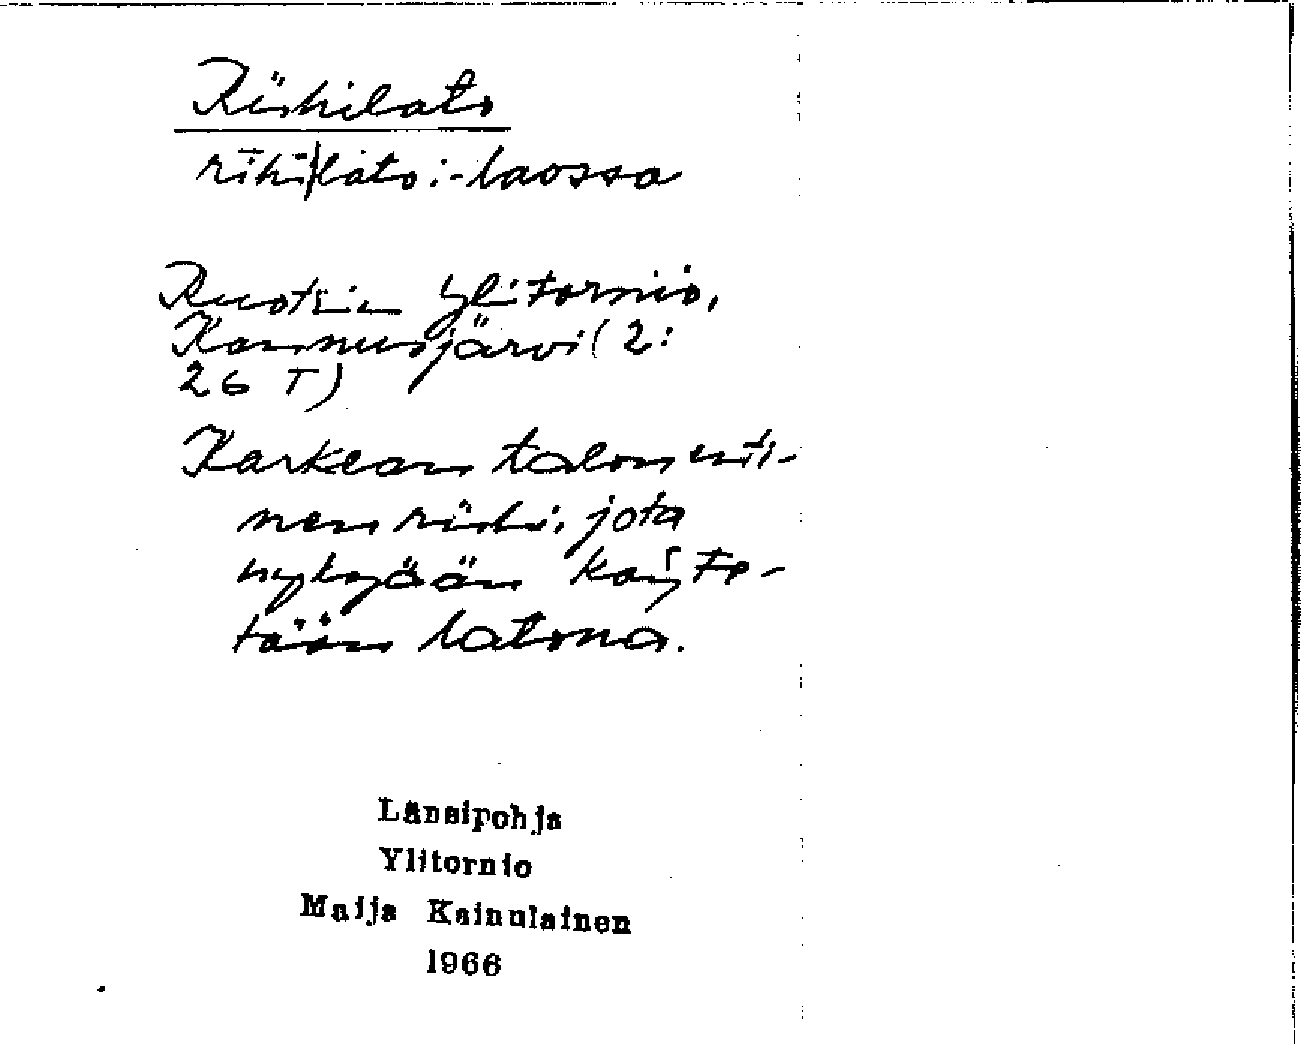 Riihilato
rīhi|lato: -laossa
Ruotsin Ylitornio,
Kannusjärvi (2:
26 T)
Karkean talon enti-
nen riihi, jota
nykyään käyte-
tään latona.
Länsipohja
Ylitornio
Maija Kainulainen
1966